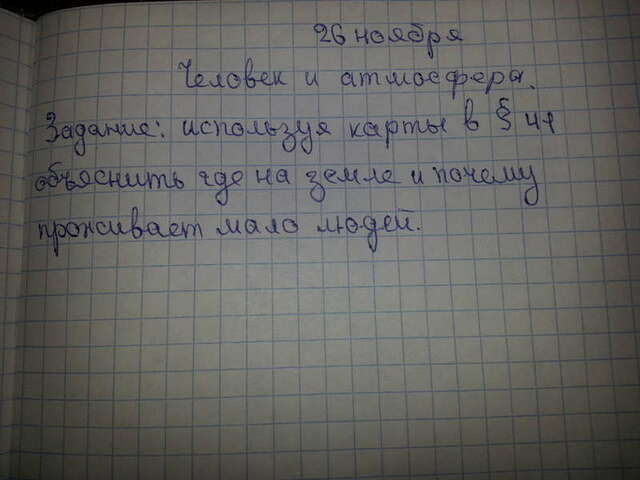 26 ноября
Человек и атмосфера.
Задание: используя карты в § 41
объяснить где на земле и почему
проживает мало людей.